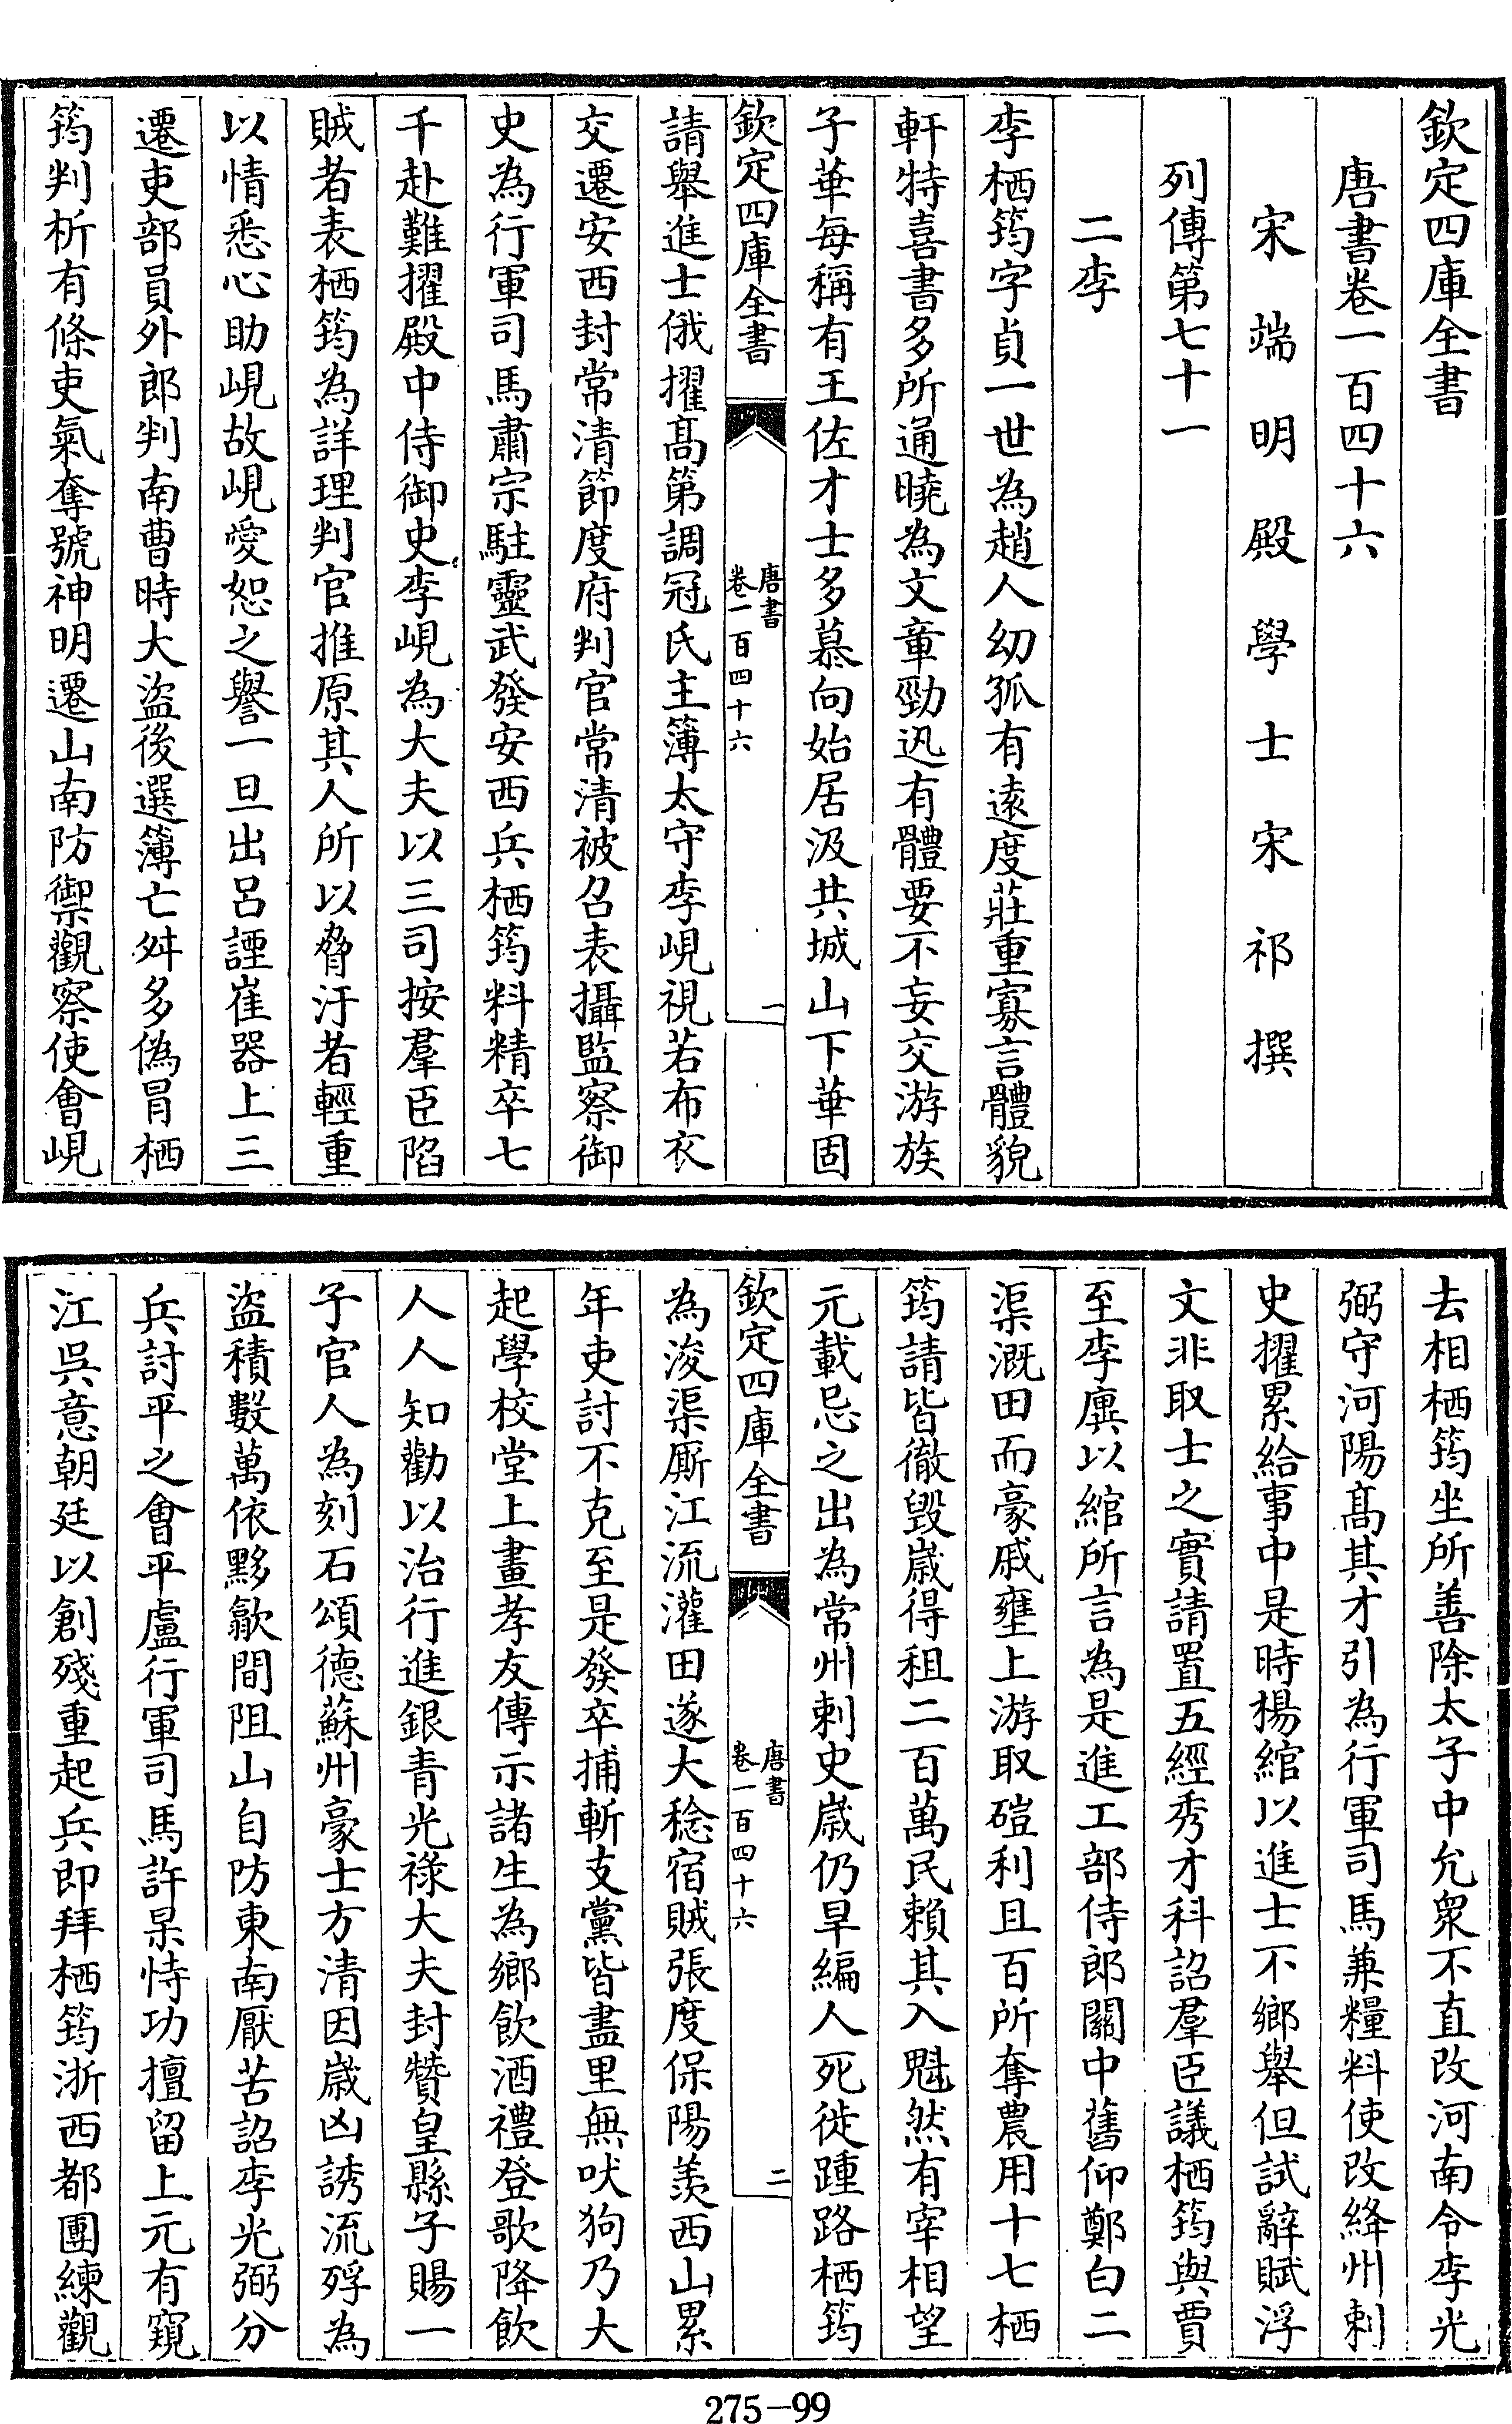 欽定四庫全書
唐書卷一百四十六
宋端明殿學士宋祁撰
列傳第七十一
二李
李栖筠字貞一世為趙人幼孤有遠度莊重寡言體貌
軒特喜書多所通曉為文章勁迅有體要不妄交游族
子華每稱有王佐才士多慕向始居汲共城山下華固
欽定四庫全書
唐書
卷一百四十六
一
請舉進士俄擢髙第調冠氏主簿太守李峴視若布衣
交遷安西封常清節度府判官常清被召表攝監察御
史為行軍司馬肅宗駐靈武發安西兵栖筠料精卒七
千赴難擢殿中侍御史李峴為大夫以三司按羣臣陷
賊者表栖筠為詳理判官推原其人所以脅汙者輕重
以情悉心助峴故峴愛恕之譽一旦出呂諲崔器上三
遷吏部員外郎判南曹時大盜後選簿亡舛多偽冒栖
筠判析有條吏氣奪號神明遷山南防禦觀察使會峴
去相栖筠坐所善除太子中允衆不直改河南令李光
弼守河陽髙其才引為行軍司馬兼糧料使改絳州刺
史擢累給事中是時楊綰以進士不鄉舉但試辭賦浮
文非取士之實請置五經秀才科詔羣臣議栖筠與賈
至李廙以綰所言為是進工部侍郎關中舊仰鄭白二
渠溉田而豪戚壅上游取磑利且百所奪農用十七栖
筠請皆徹毀歲得租二百萬民賴其入魁然有宰相望
元載忌之出為常州刺史歲仍旱編人死徙踵路栖筠
欽定四庫全書
唐書
卷一百四十六
二
為浚渠厮江流灌田遂大稔宿賊張度保陽羨西山累
年吏討不克至是發卒捕斬支黨皆盡里無吠狗乃大
起學校堂上畫孝友傳示諸生為鄉飲酒禮登歌降飲
人人知勸以治行進銀青光祿大夫封贊皇縣子賜一
子官人為刻石頌德蘇州豪士方清因歲凶誘流殍為
盜積數萬依黟歙間阻山自防東南厭苦詔李光弼分
兵討平之會平盧行軍司馬許杲恃功擅留上元有窺
江吳意朝廷以創殘重起兵即拜栖筠浙西都團練觀
275-99